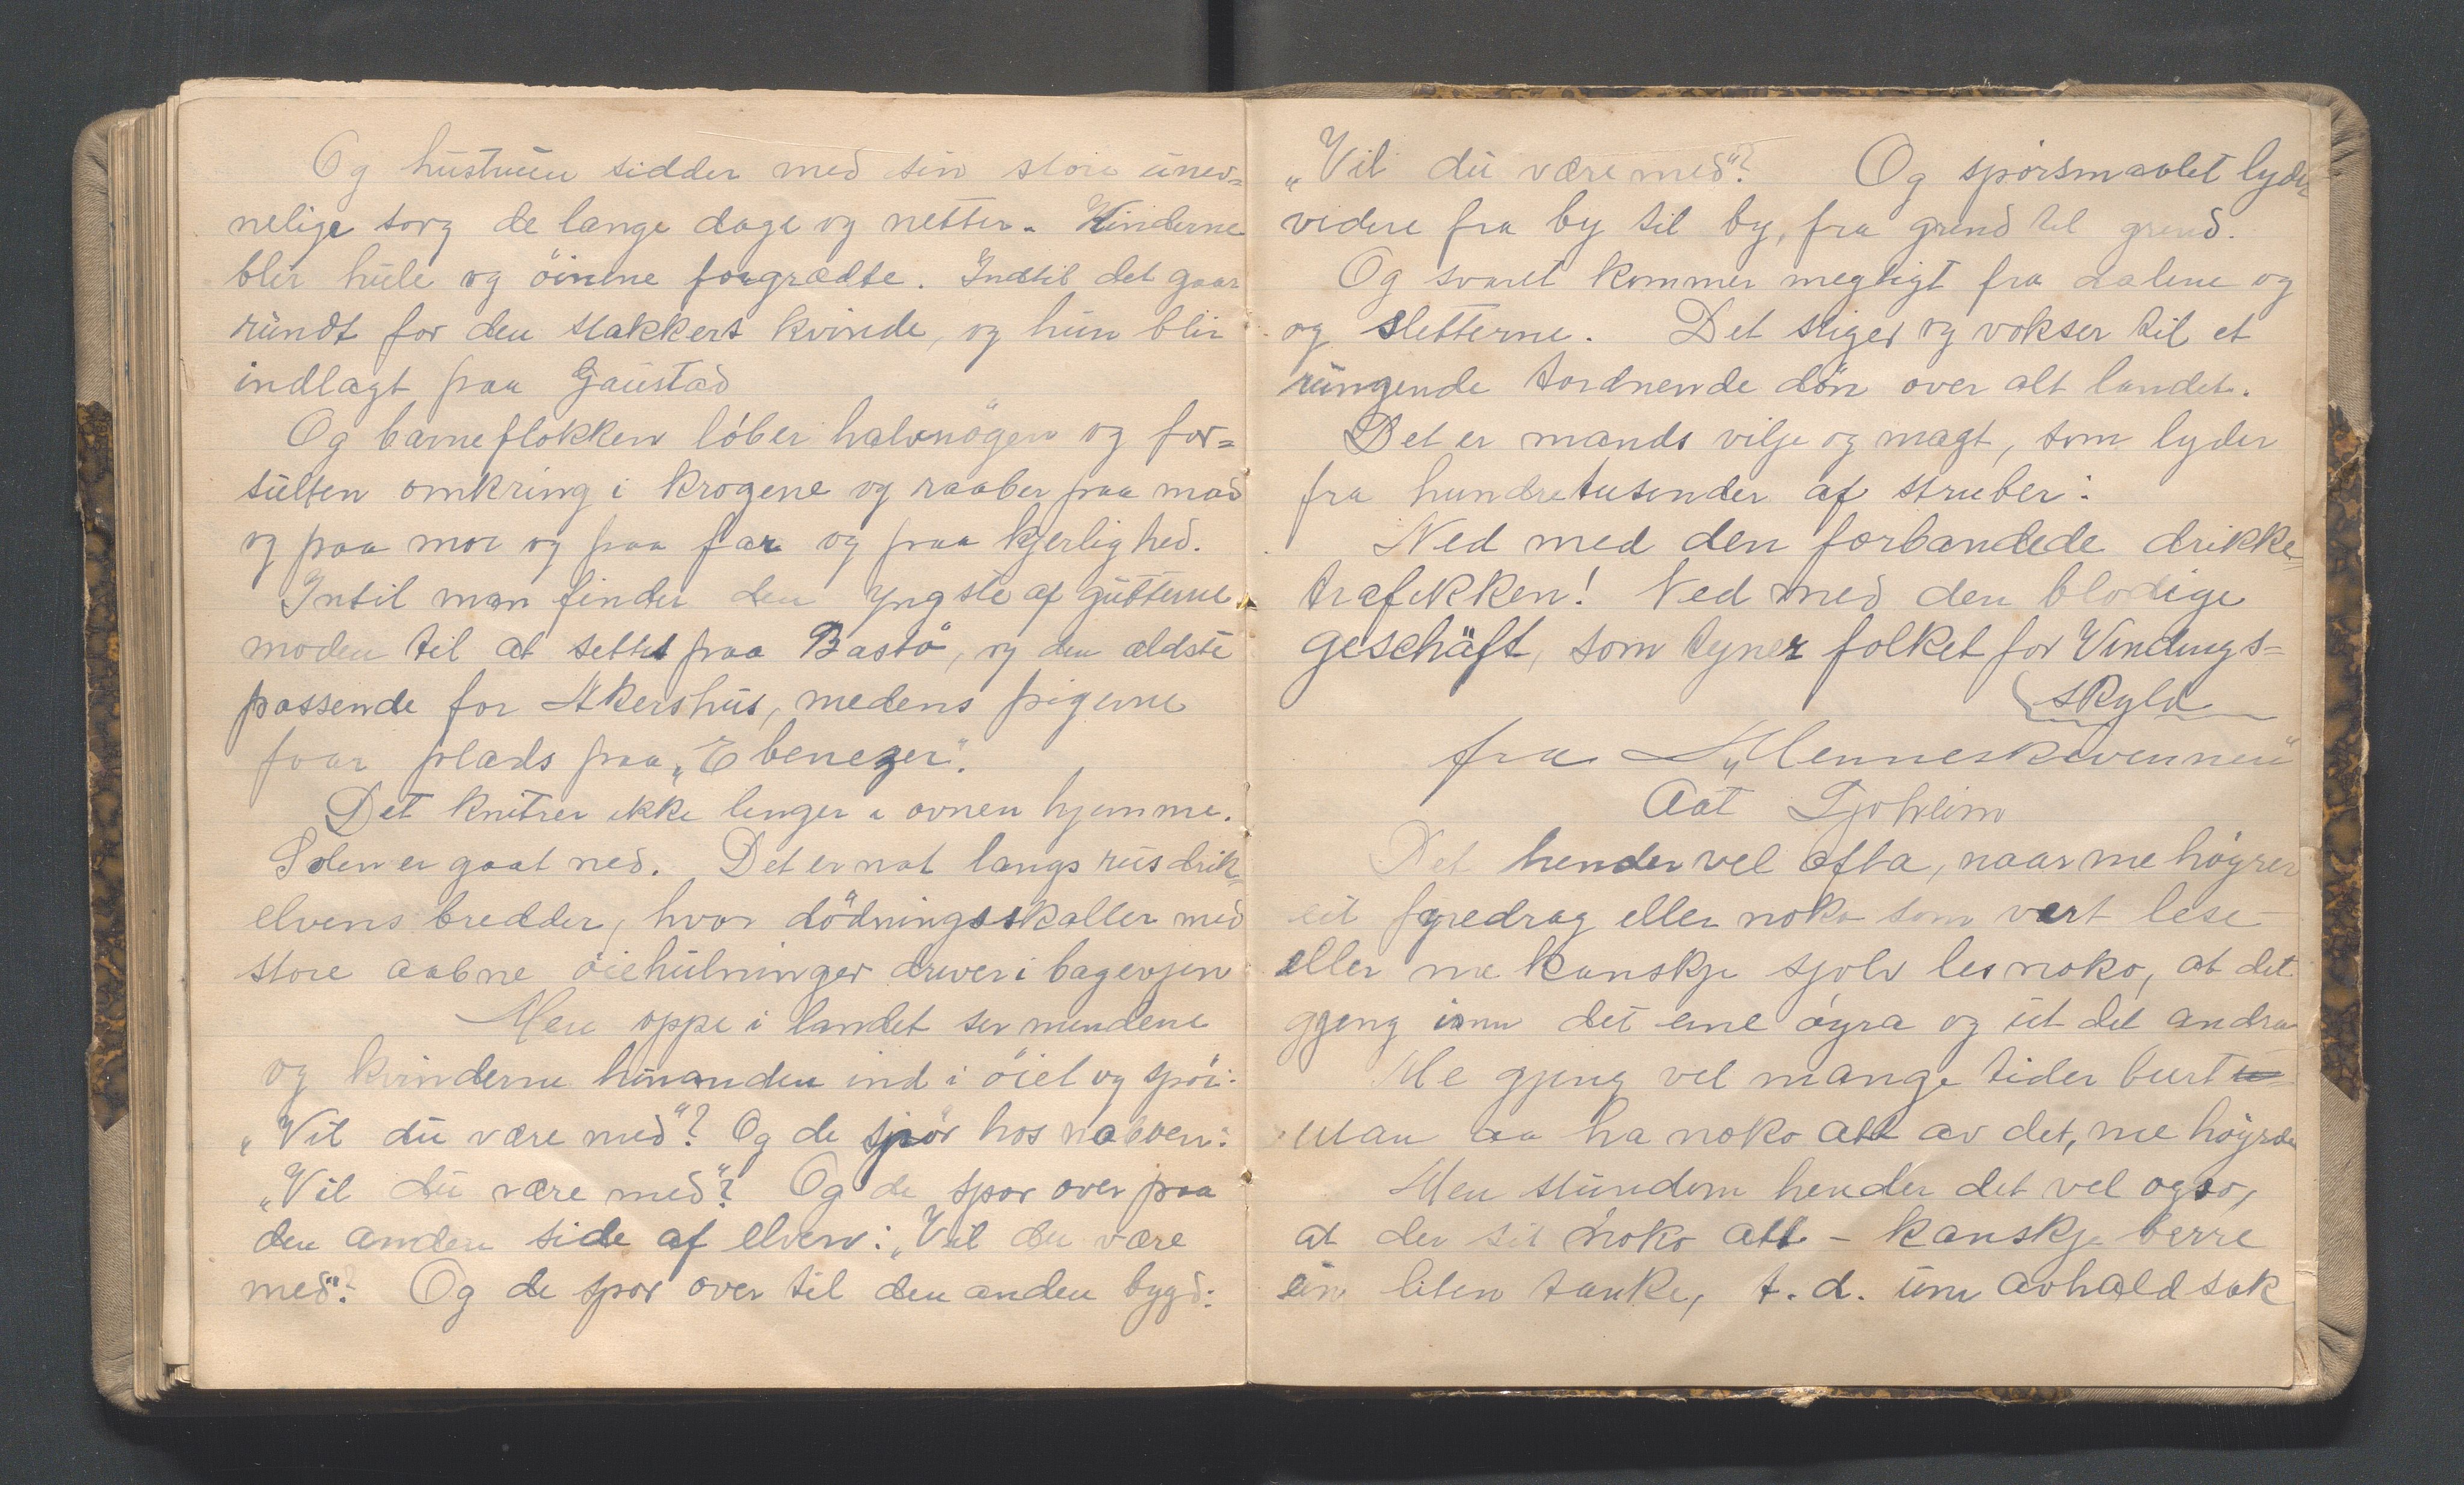 Og hustruen sidder med sin store unev=
nelige sorg de lange dage og netter. Kinderne
blir hule og öinene forgrædte. Indtil det gaar
rundt for den stakkers kvinde, og hun blir
indlagt paa Gaustad
Og barneflokken löber halvnögen og for=
sulten omkring i krogene og raaber paa mad
og paa mor og paa far og paa kjerlighed.
Intil man finder den yngste af gutterne
moden til at settes paa Bastö, og den ældste
passende for Akershus, medens pigerne
faar plads paa „Ebenezer".
Det knitrer ikke lenger i ovnen hjemme.
Solen er gaat ned. Det er nat langs rusdrik=
elvens bredder, hvor dödningsskaller med
store aabne öiehulninger driver i bagevjen
Men oppe i landet ser mendene
og kvinderne hinanden ind i öiet og spör:
„Vil du være med"? Og de spör hos naboen:
„Vil du være med"? Og de spör over paa
den anden side af elven: „Vil du være
med"? Og de spör over til den anden bygd:
„Vil du være med"? Og spörsmaalet lyder
videre fra by til by, fra grend til grend.
Og svaret kommer megtigt fra dalene og
og sletterne. Det stiger og vokser til et
rungende tordnende dön over alt landet.
Det er mands vilje og magt, som lyder
fra hundretusender af struber:
Ned med den forbandede drikke=
trafikken! Ned med den blodige
geschäft, som tyner folket for Vindings=
skyld
fra „Menneskevennen"
Aat Tjoheim
Det hender vel ofta, naar me höyrer
eit foredrag eller noko som vert lese
eller me kanskje sjolv les noko, at det
gjeng inn det eine öyra og ut det andra
Me gjeng vel mange tider burt
utan aa ha noko att av det, me höyrde
Men stundom hender det vel ogso,
at der sit noko att - kanskje berre
ein liten tanke, t.d. um avhaldsak